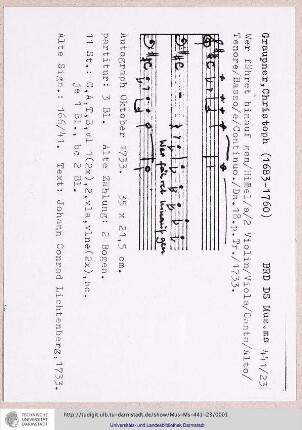 Graupner,Christoph (1683-1760)    BRD DS Mus.ms 441/23
Wer führet hinauf gen/Him̄el/a/2 Violin/Viola/Canto/Alto/
Tenore/Basso/e/Continuo./Dn.18.p.Tr./1733.
Wer führt hinauf gen
Autograph Oktober 1733.    35 x 21,5 cm.
partitur: 3 Bl.    Alte Zählung: 2 Bogen.
11 St.: C,A,T,B,vl 1(2x),2,vla,vlne(2x),bc.
je 1 Bl., bc 2 Bl.
Alte Sign.: 166/41.    Text: Johann Conrad Lichtenberg,1733.
TECHNISCHE
UNIVERSITÄT
DARMSTADT
http://tudigit.ulb.tu-darmstadt.de/show/Mus-Ms-441-23/0001
Universitäts- und Landesbibliothek Darmstadt